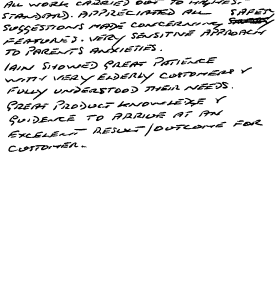 ALL WORK CARRIED OUT TO HIGHES.
STANDARD. APPRECIATED ALL SAFETY
SUGGESTIONS MADE CONCERNING
FEATURES. VERY SENSITIVE APPROACH
TO PARENTS ANXIETIES.
IAIN SHOWED GREAT PATIENCE
WITH VERY ELDERLY CUSTOMERS Y
FULLY UNDERSTOOD THEIR NEEDS.
GREAT PRODUCT KNOWLEDGE Y
GUIDENCE TO ARRIVE AT AN
EXCELENT RESULT/OUTCOME FOR
CUSTOMER.